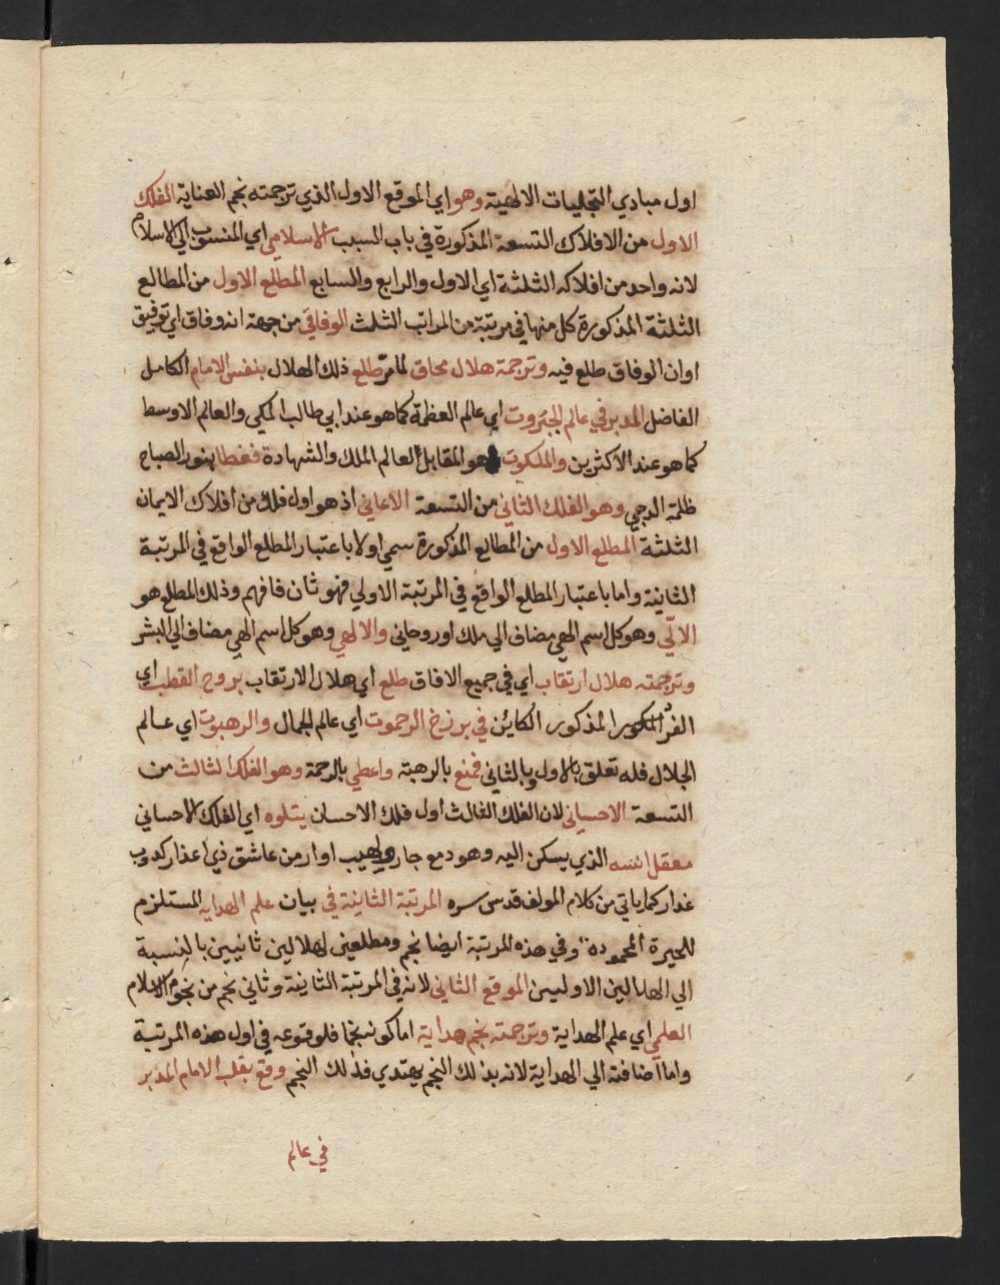 اول مبادي التجليات الالهية وهو اي الموقع الاول الذي ترجمته نجم العناية الفلك
الاول من الافلاك التسعة المذكورة في باب السبب الاسلامي اي المنسوب الي الاسلام
لانه واحد من افلاكه الثلثة اي الاول والرابع والسابع المطلع الاول من المطالع
الثلثة المذكورة كل منها في مرتبة من المراتب الثلث الوفاقي من جهة انه وفاق اي توفيق
اوان الوفاق طلع فيه وترجمة هلال محاق لمامر طلع ذلك الهلال بنفس الامام الكامل
الفاضل المدبر في عالم الجبروت اي عالم العظمة كما هو عند ابي طالب المكي والعالم الاوسط
كما هو عند الاكثرين والملكوت هو المقابل لعالم الملك والشهادة فغطا بنور الصباح
ظلمة الدجي وهو الفلك الثاني من التسعة الايماني اذ هو اول فلك من افلاك الايمان
الثلثة المطلع الاول من المطالع المذكورة سمي اولا باعتبار المطلع الواقع في المرتبة
الثانية واما باعتبار المطلع الواقع في المرتبة الاولي فهو ثان فافهم وذلك المطلع هو
الالّي وهو كل اسم الهي مضاف الي ملك او روحاني والالهي وهو كل اسم الهي مضاف الي البشر
وترجمته هلال ارتقاب اي في جميع الافاق طلع اي هلال الارتقاب بروح القطب اي
الفرد المذكور الكائن في برزخ الرحموت اي عالم الجمال والرهبوت اي عالم
الجلال فله تعلق بالاول وبالثاني فمنع بالرهبة واعطي بالرحمة وهو الفلك الثالث من
التسعة الاحساني لان الفلك الثالث اول فلك الاحسان يتلوه اي الفلك الاحساني
معقل انسه الذي يسكن اليه وهو دمع جار ولهيب اوار من عاشق ذي اعذار كدوب
غدار كما ياتي من كلام المولف قدس سره المرتبة الثانية في بيان علم الهداية المستلزم
للحيرة المحمودة وفي هذه المرتبة ايضا نجم ومطلعين لهلالين ثانيين بالنسبة
الي الهلالين الاوليين الموقع الثاني لانه في المرتبة الثانية وثاني نجم من نجوم الاسلام
العلمي اي علم الهداية وترجمته نجم هداية اما كونه نجما فلوقوعه في اول هذه المرتبة
واما اضافته الي الهداية لانه بذلك النجم يهتدي فذلك النجم وقع بقلب الامام المدبر
في عالم